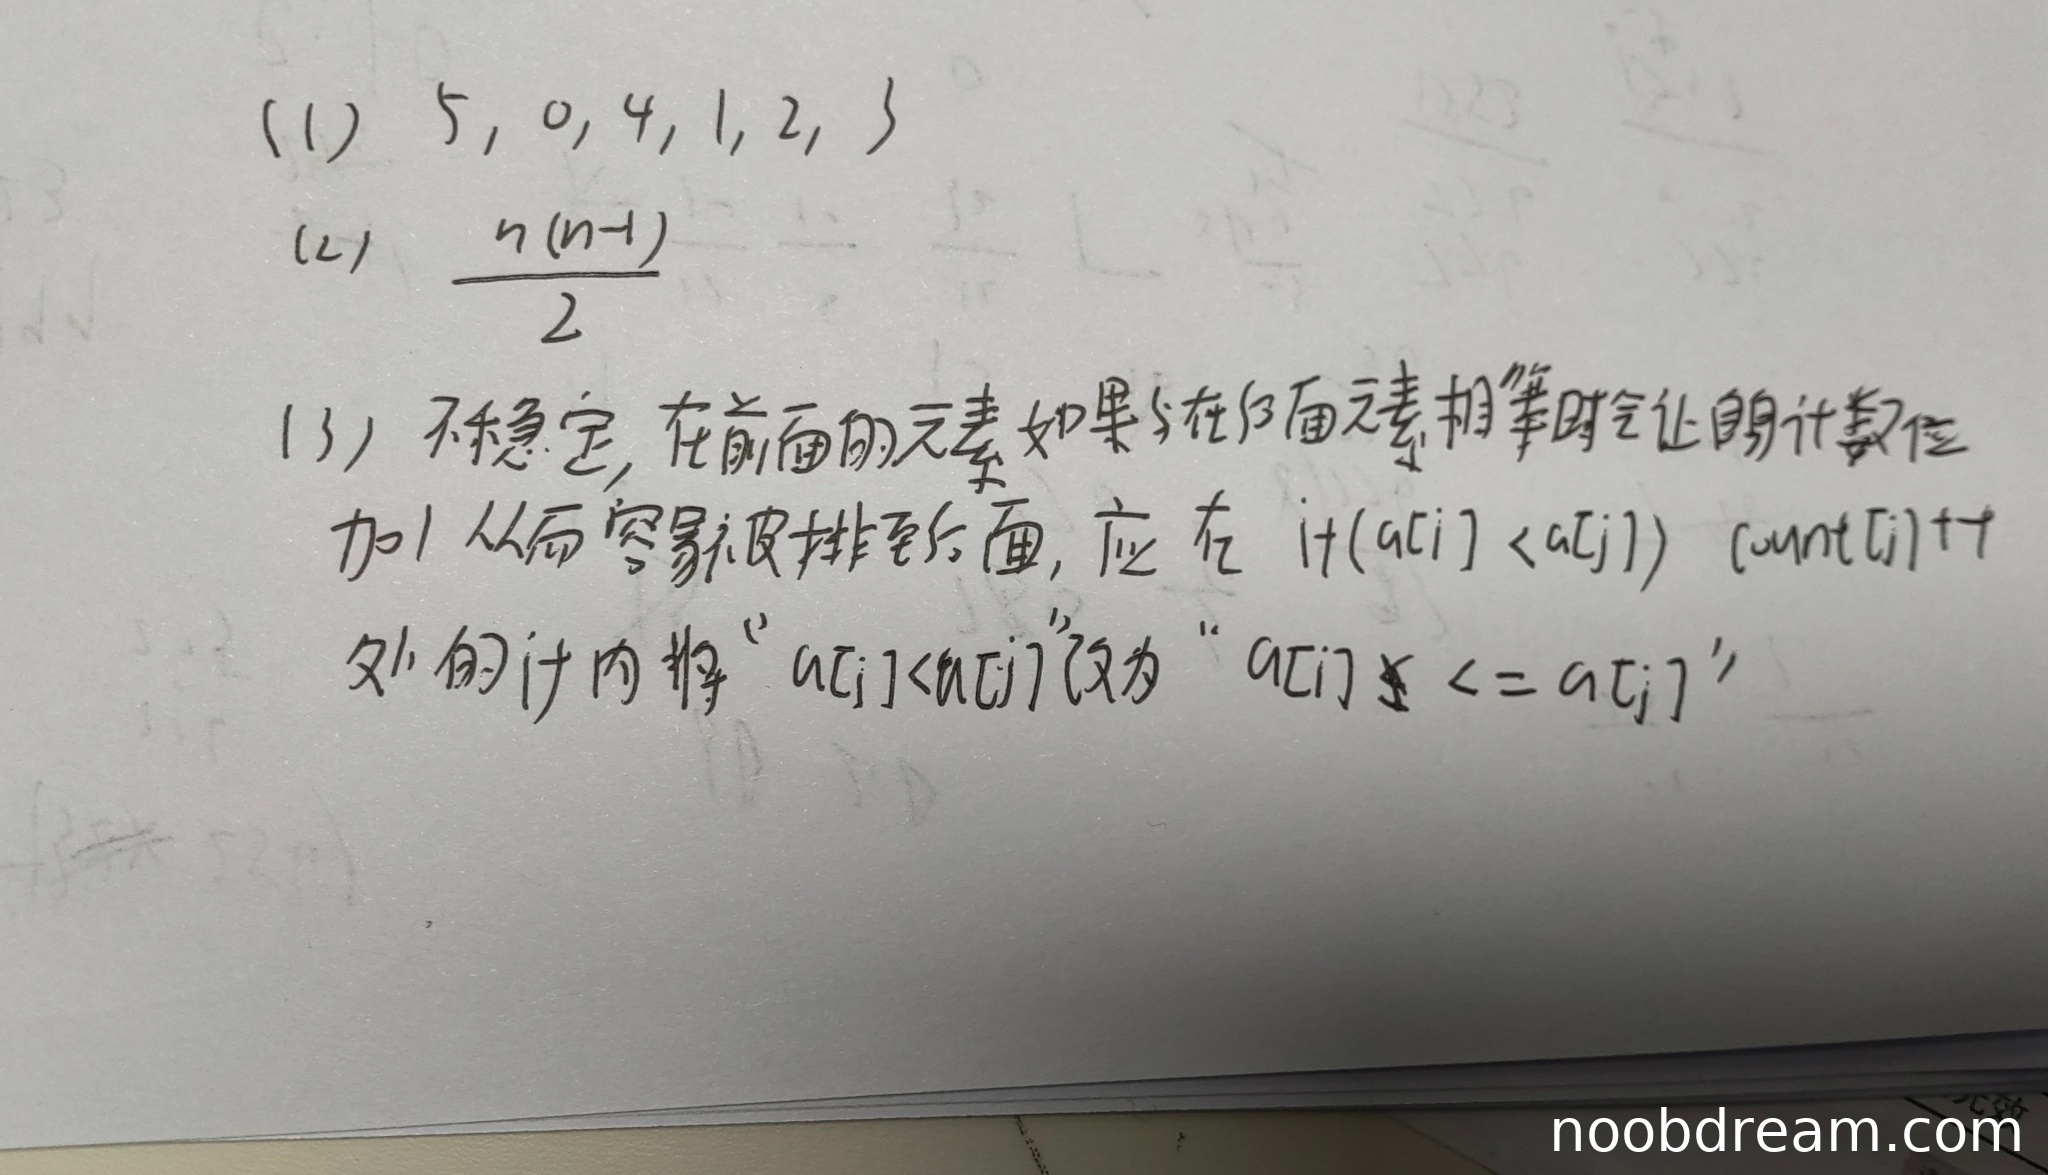 (1) 5, 0, 4, 1, 2, 3
(2) n(n-1)/2
(3) 不稳定,在前面的元素如果与在后面元素相等时会让自身计数位
加1从而容易被排至后面,应在 if(a[i] <a[j]) count[j]++
处的if内将“a[i]<a[j]”改为“a[i] <= a[j]”
noobdream.com